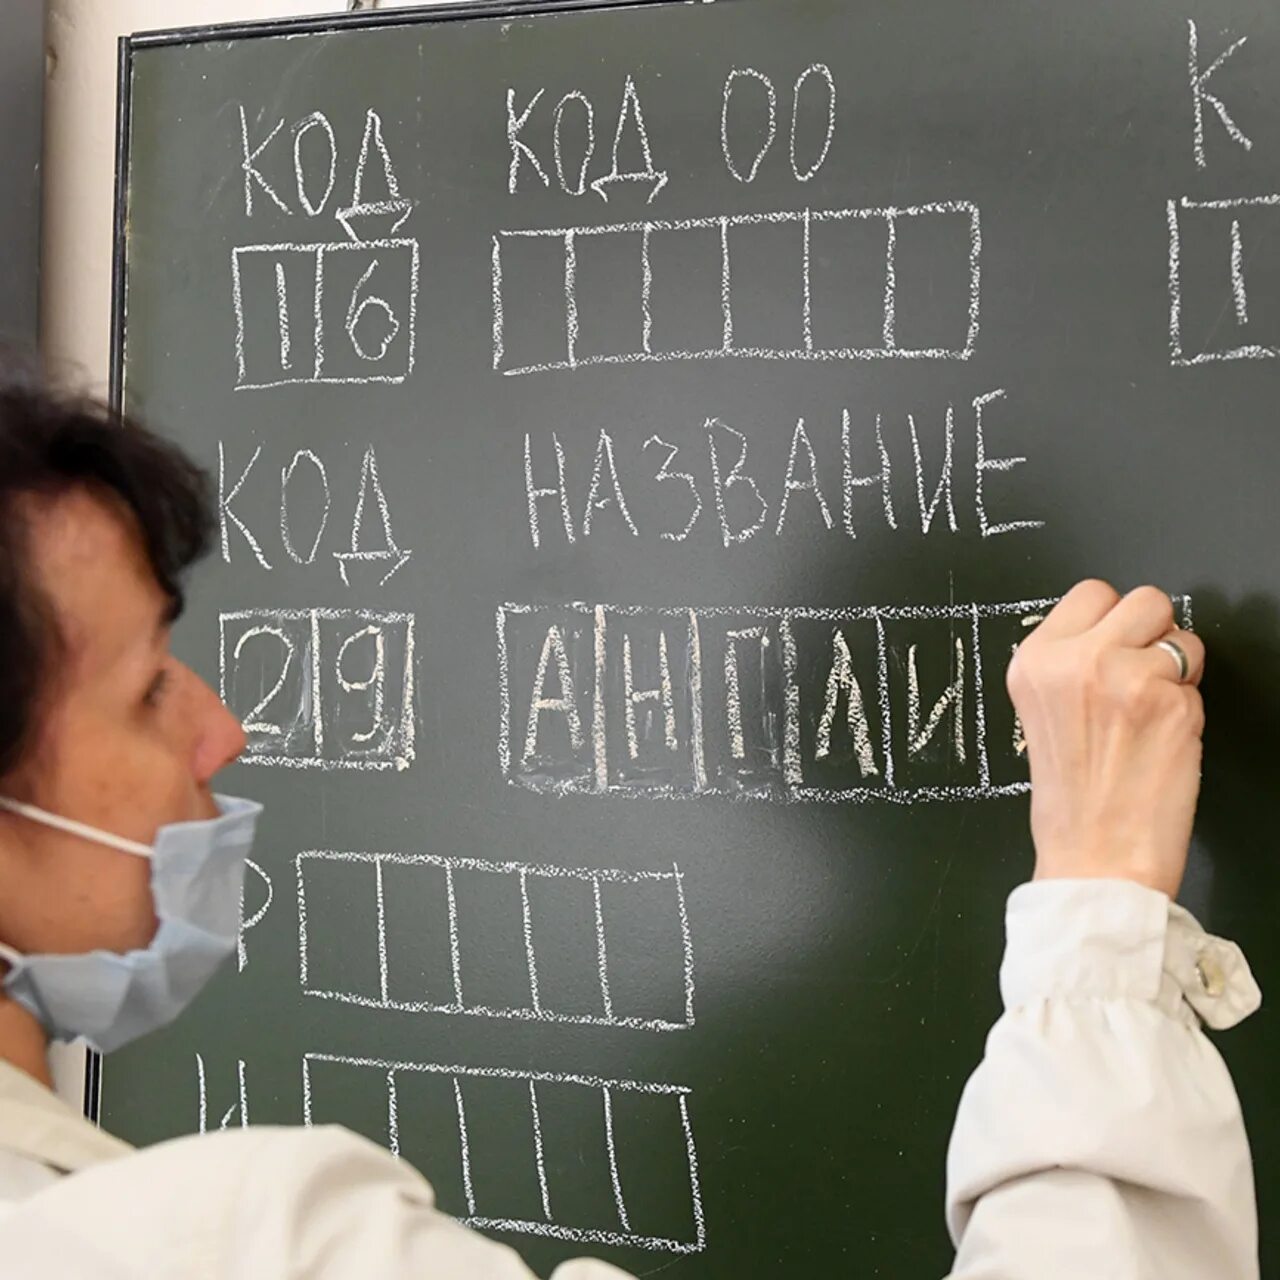 КОД КОД ОО К
16 1
КОД НАЗВАНИЕ
29 АНГЛИ
Р
И